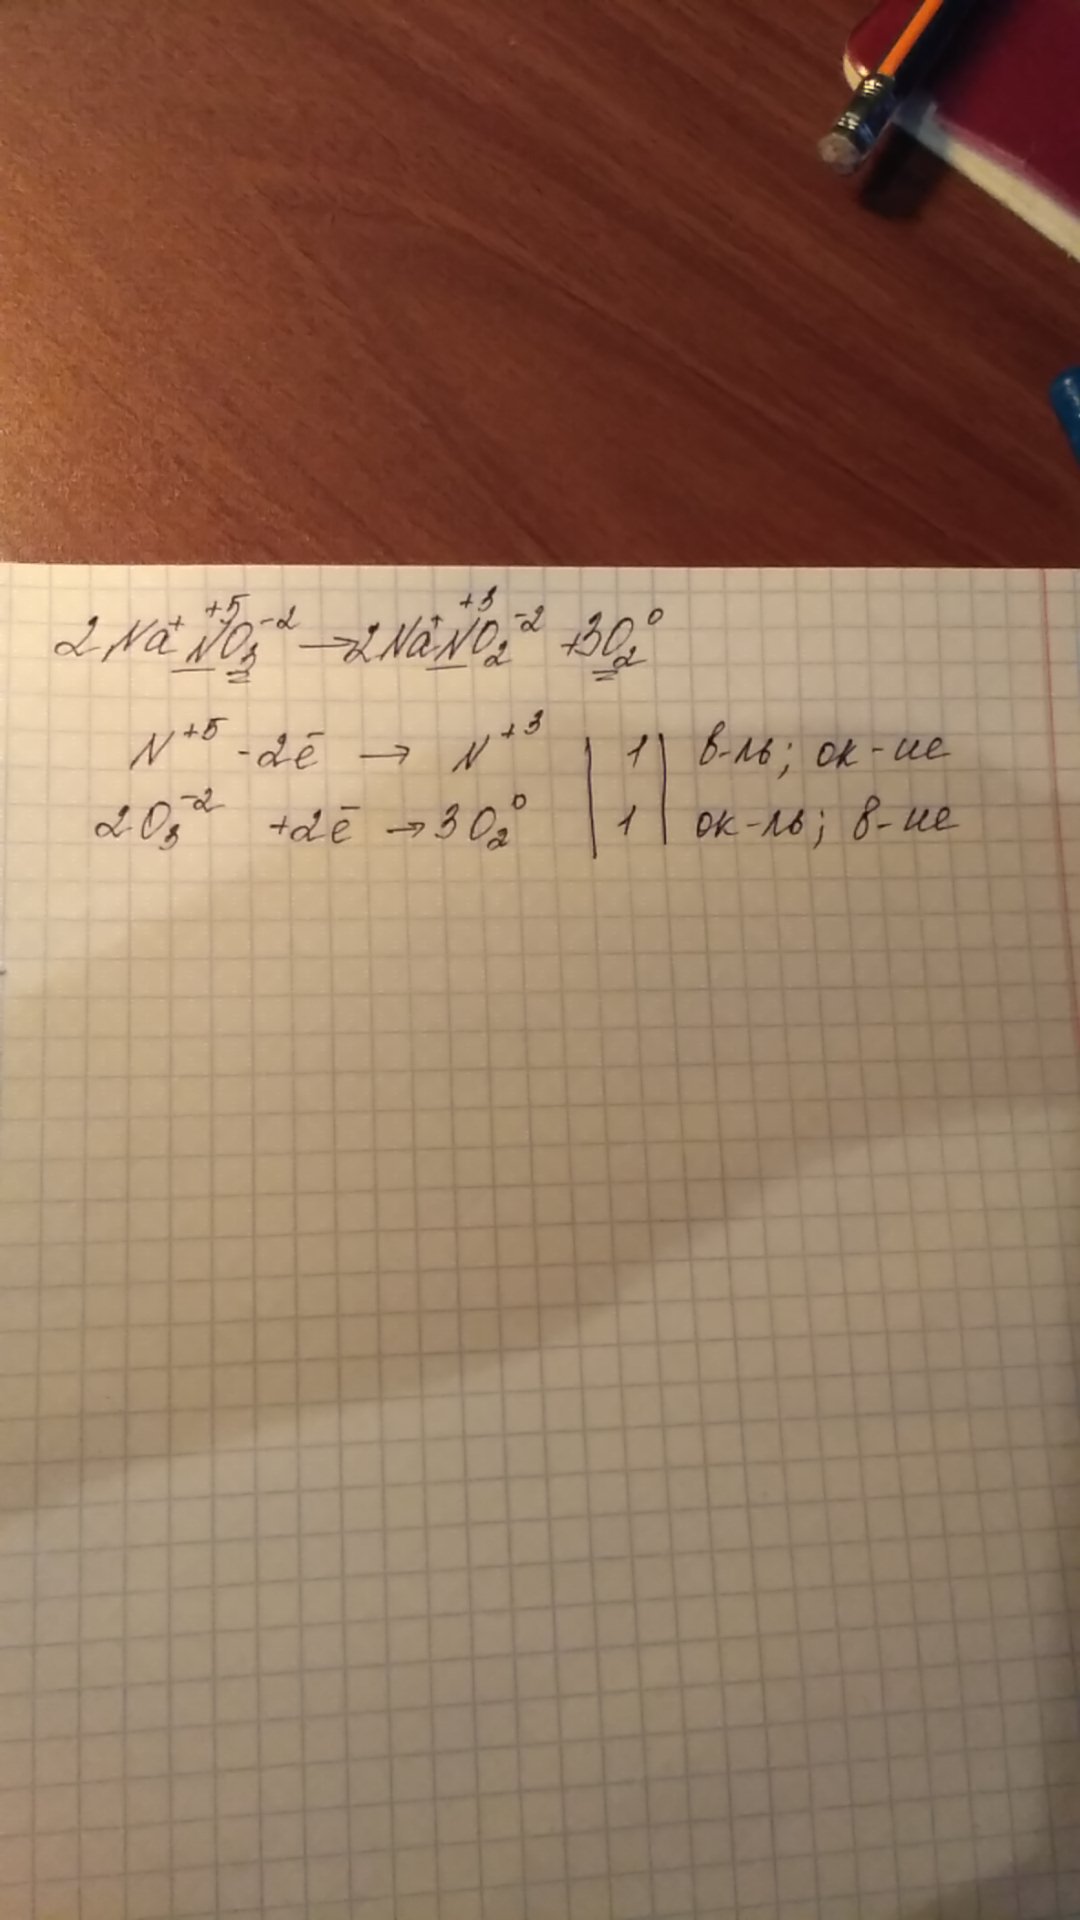 2Na⁺N⁺⁵O₃⁻² → 2Na⁺N⁺³O₂⁻² + 3O₂⁰
N⁺⁵ - 2ē → N⁺³ | 1 | в-ль; ок-ие
2O₃⁻² + 2ē → 3O₂⁰ | 1 | ок-ль; в-ие